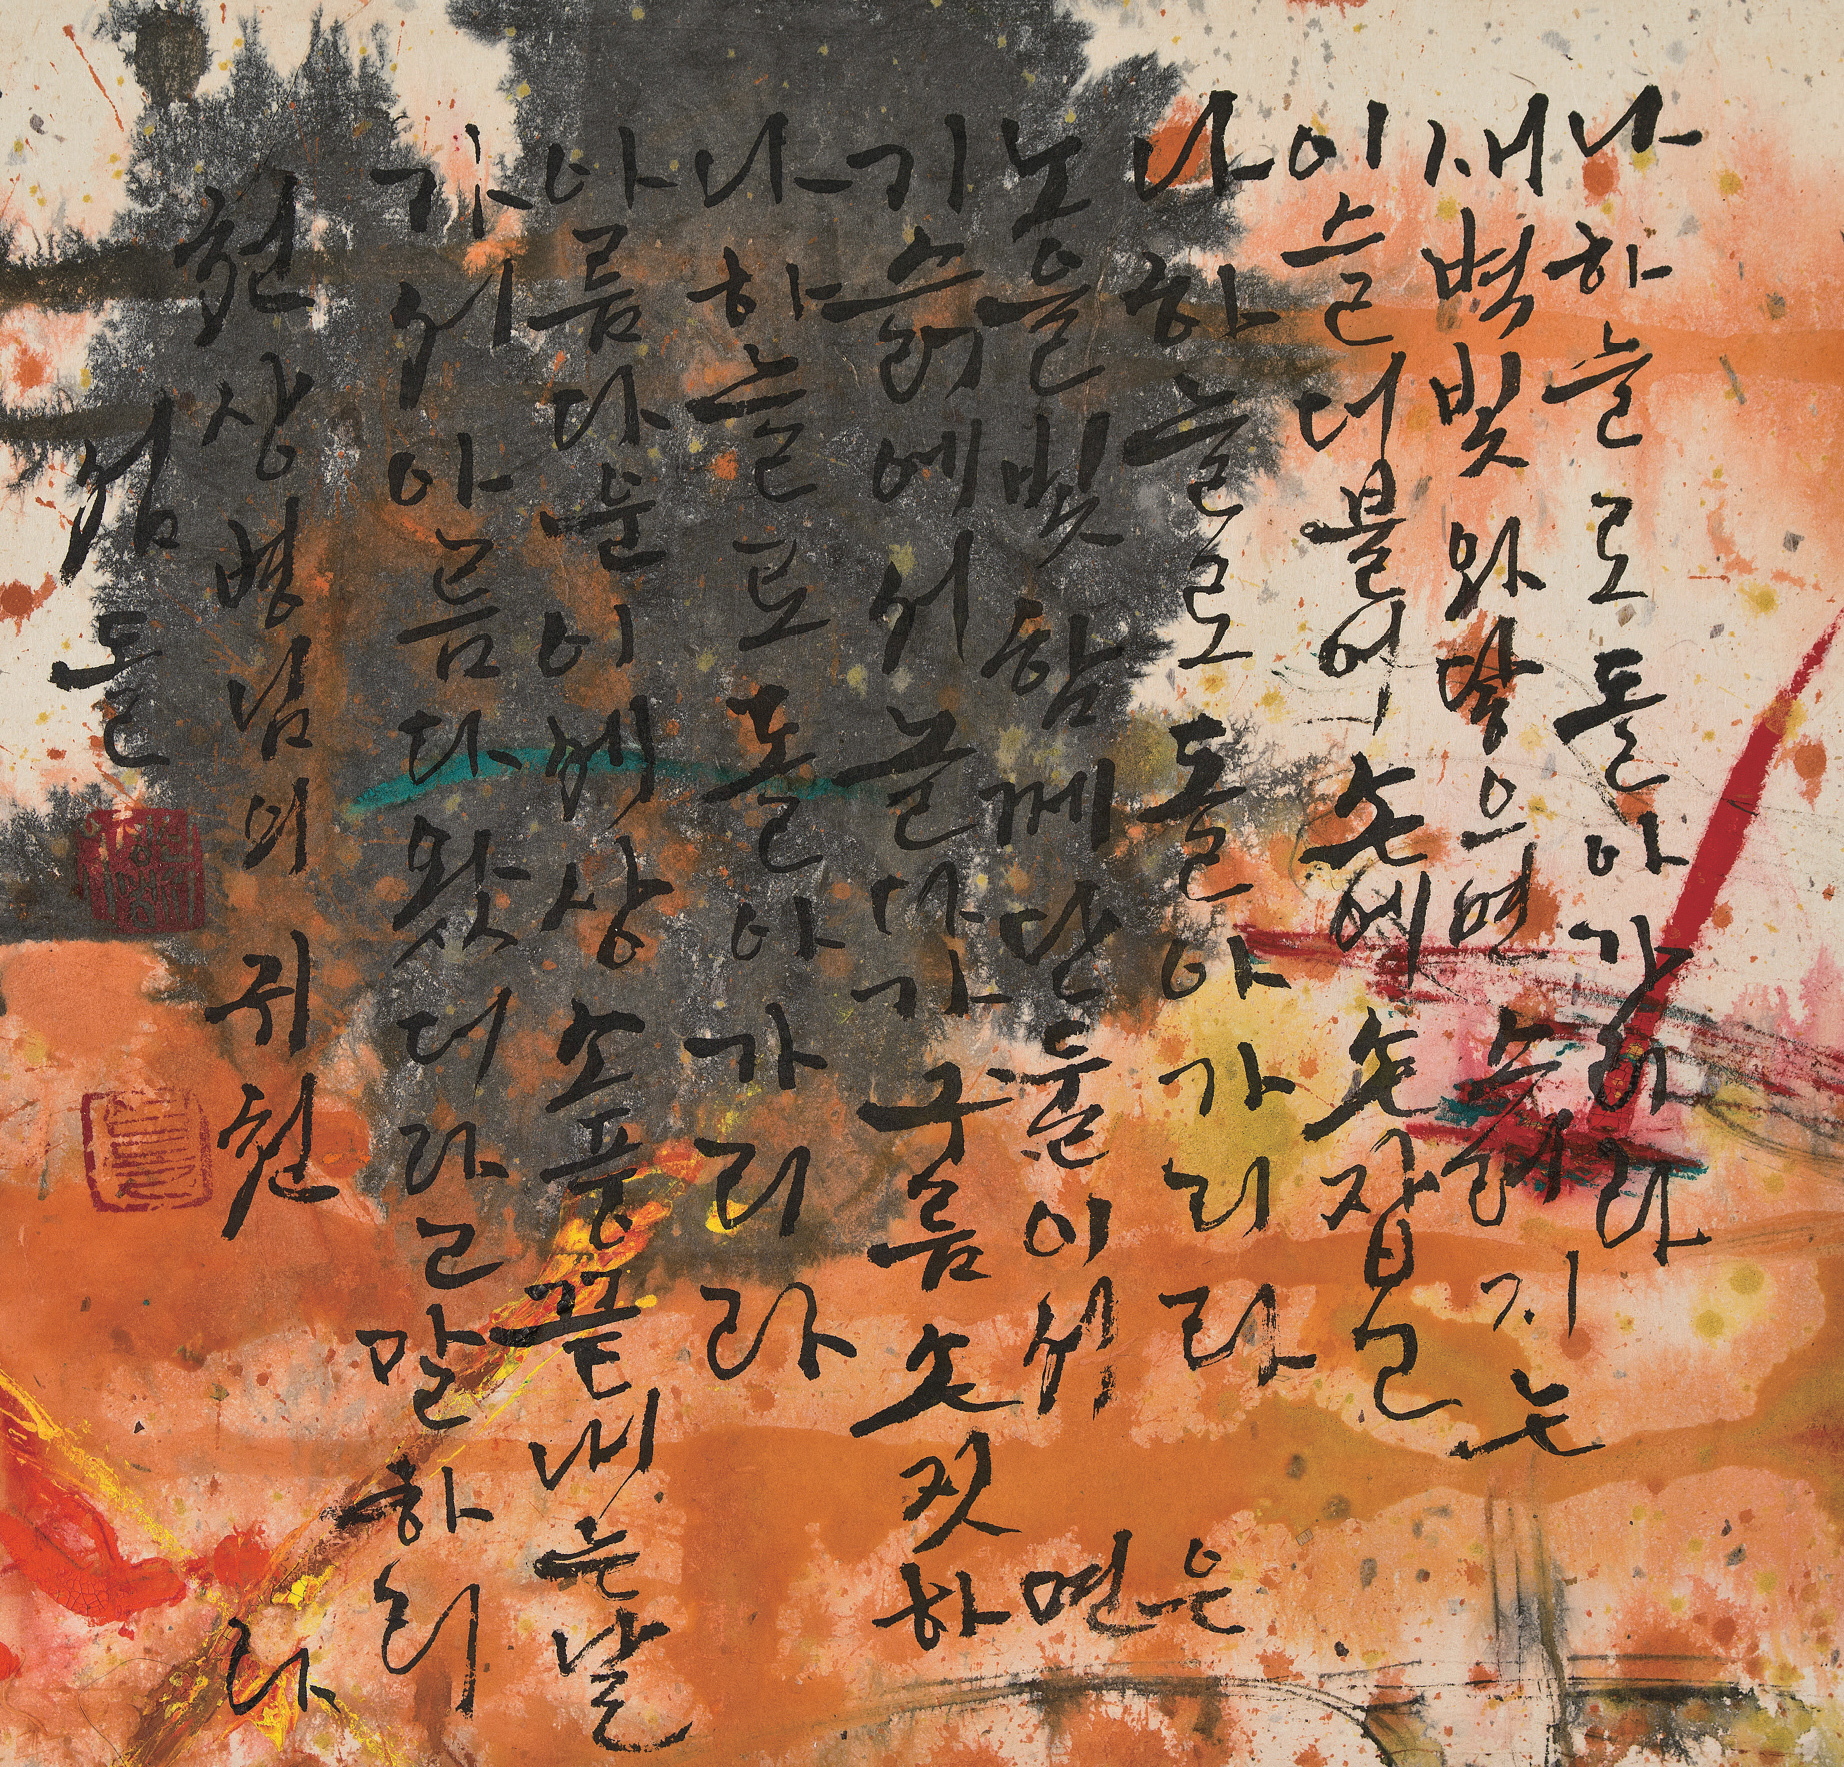 나하늘로돌아가리라
새벽빛와닿으면스러지는
이슬더불어손에손잡고
나하늘로돌아가리라
노을빛함께단둘이서
기슭에서놀다가구름손짓하면은
나하늘로돌아가리라
아름다운이세상소풍끝내는날
가서아름다웠더라고말하리라
천상병님의귀천
섬돌